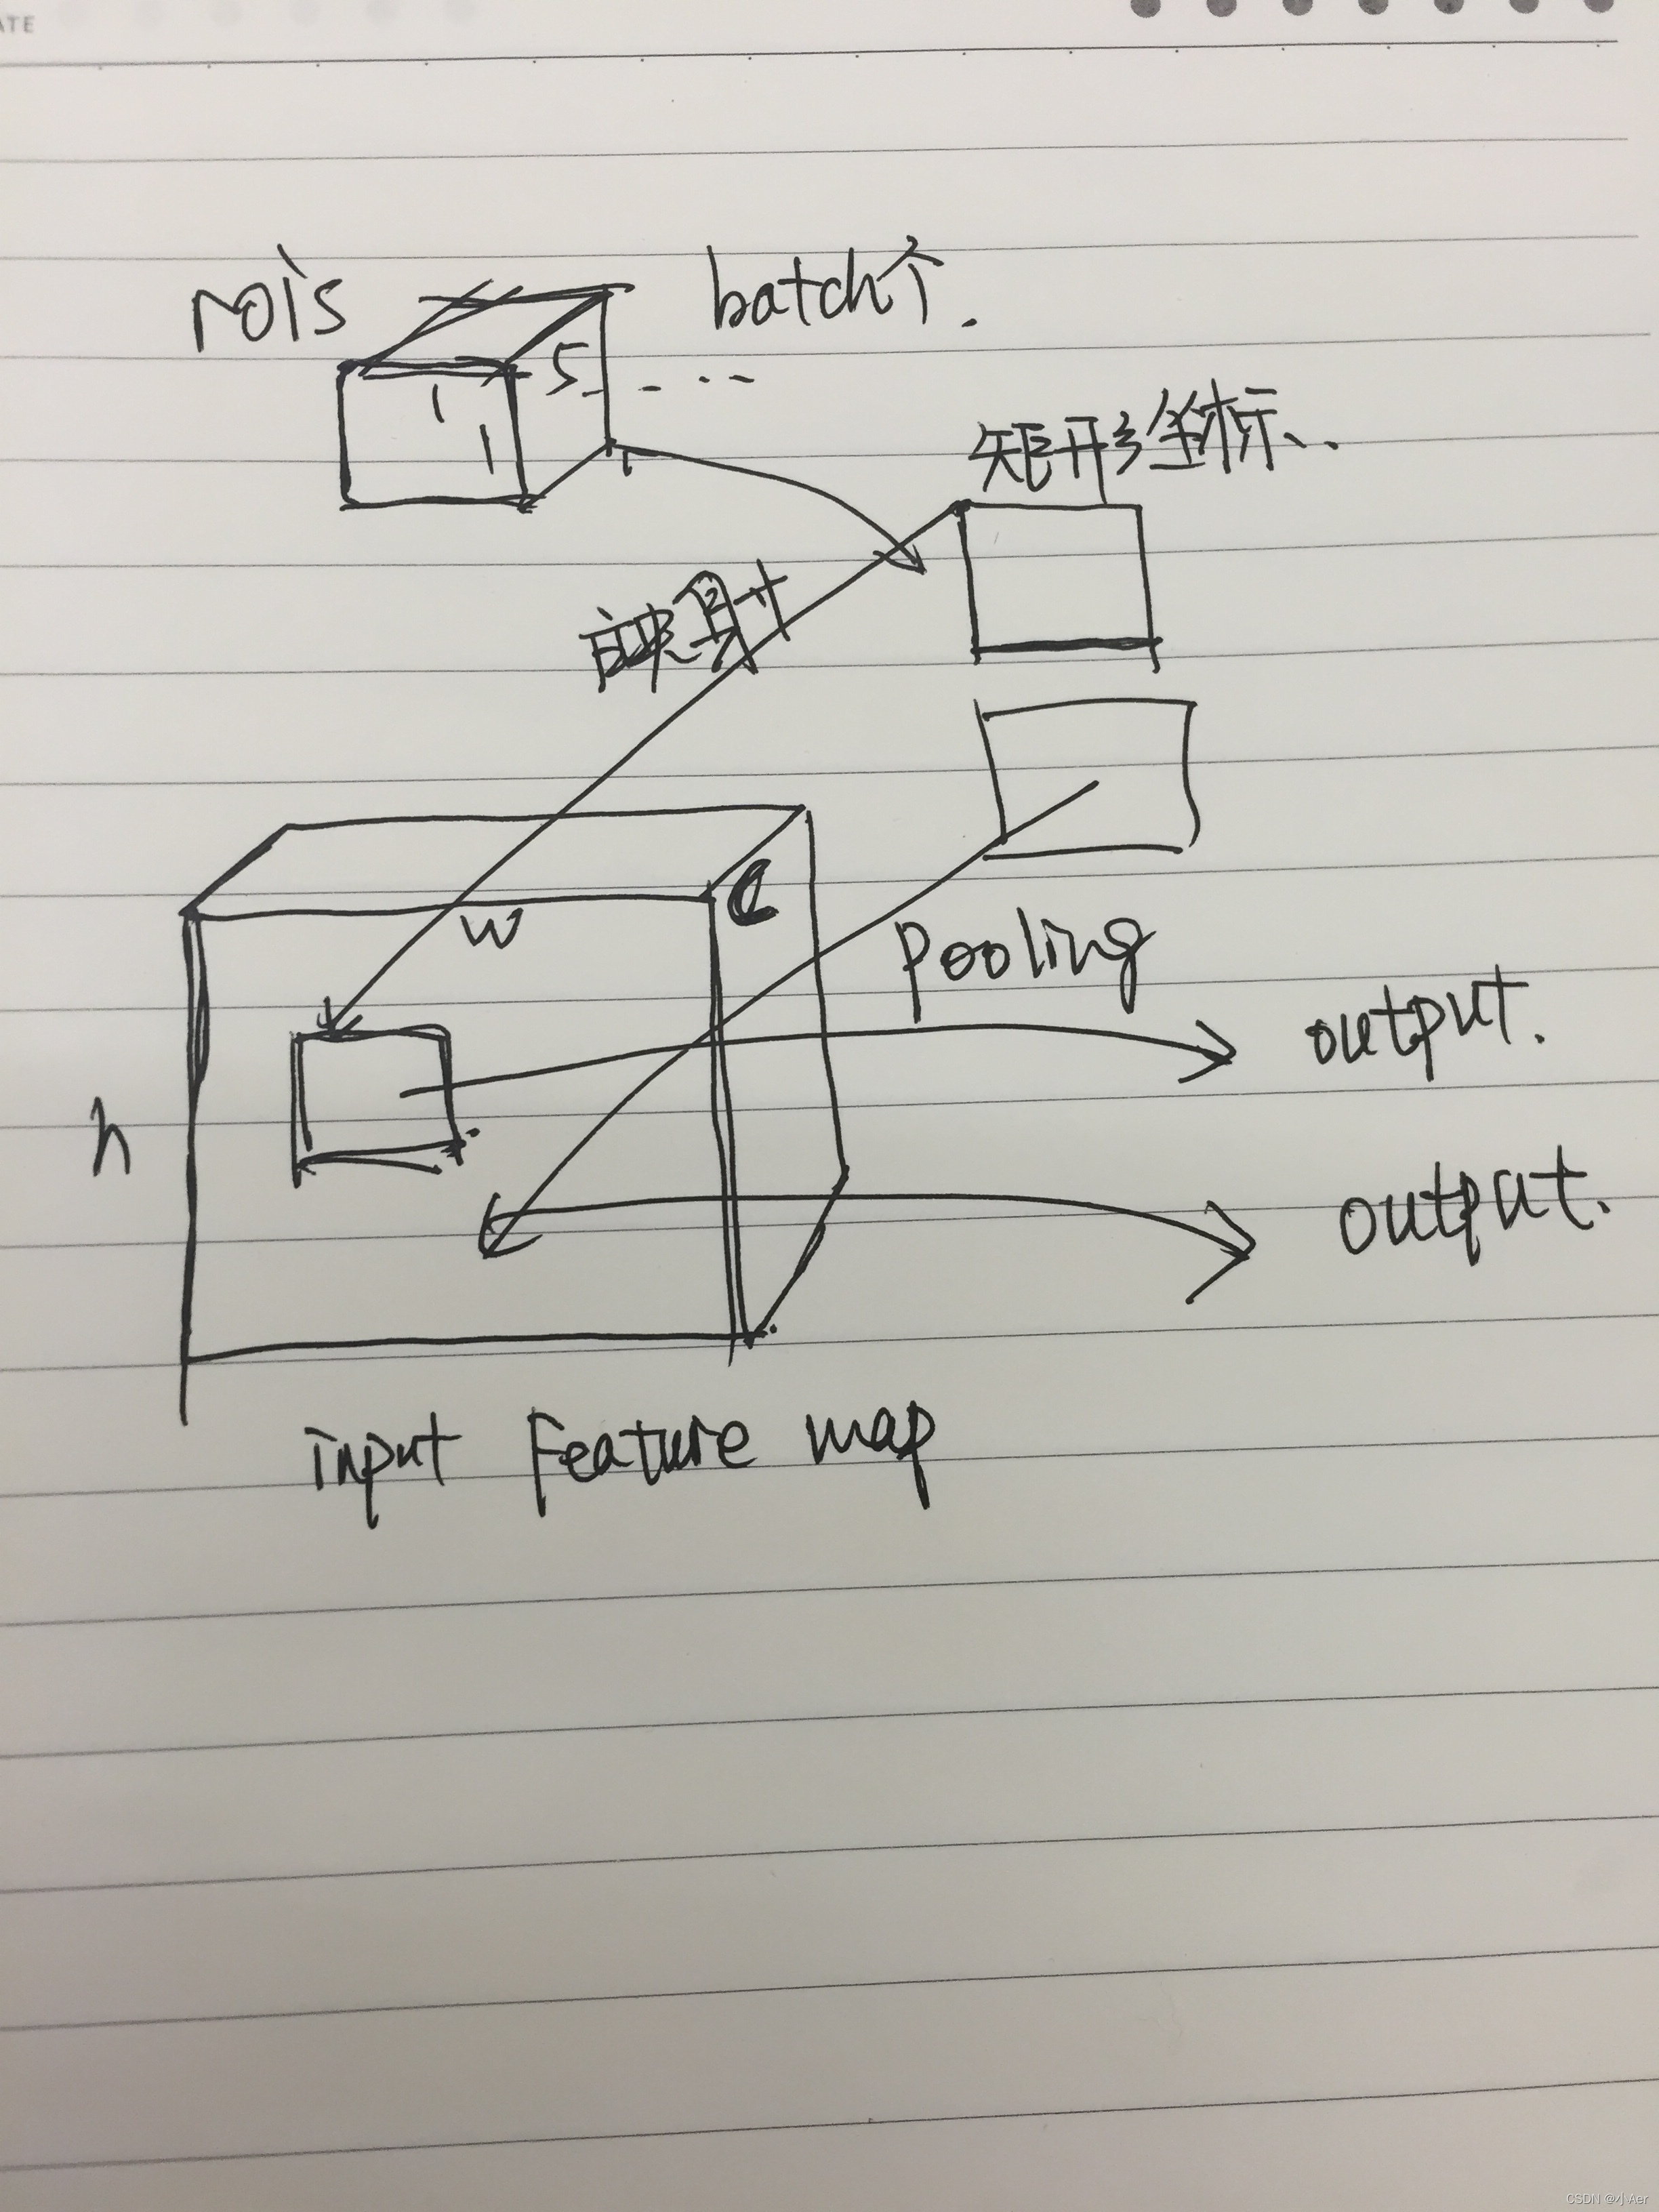 ATE
rois
batch个.
1
5
1
矩形坐标
映射
w
c
Pooling
output.
h
output.
input Feature map
CSDN @小Aer